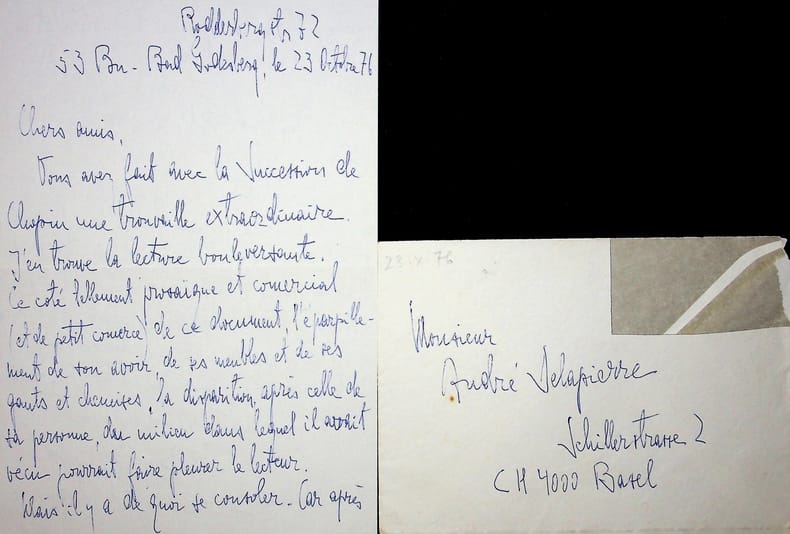 Roddesbergstr 72
53 Bn - Bad Godesberg, le 23 Octobre 76
Chers amis,
Vous avez fait avec la Succession de
Chopin une trouvaille extraordinaire.
J'en trouve la lecture bouleversante.
Ce coté tellement prosaïque et comercial
(et de petit comerce) de ce document, l'éparpille-
ment de son avoir, de ses meubles et de ses
gants et chemises, la disparition, après celle de
sa personne, du milieu dans lequel il avait
vécu pourrait faire pleurer le lecteur.
Mais il y a de quoi se consoler. Car après
23.X.76
Monsieur
André Delapierre
Schillerstrasse 2
CH 4000 Basel